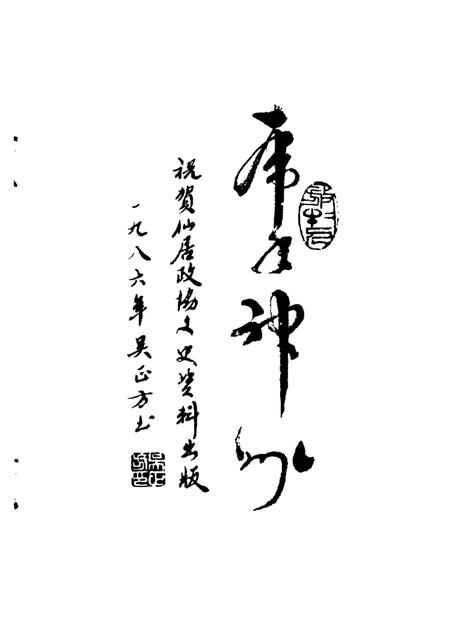 虎年神州
祝賀仙居政協文史資料出版
一九八六年吴正方书